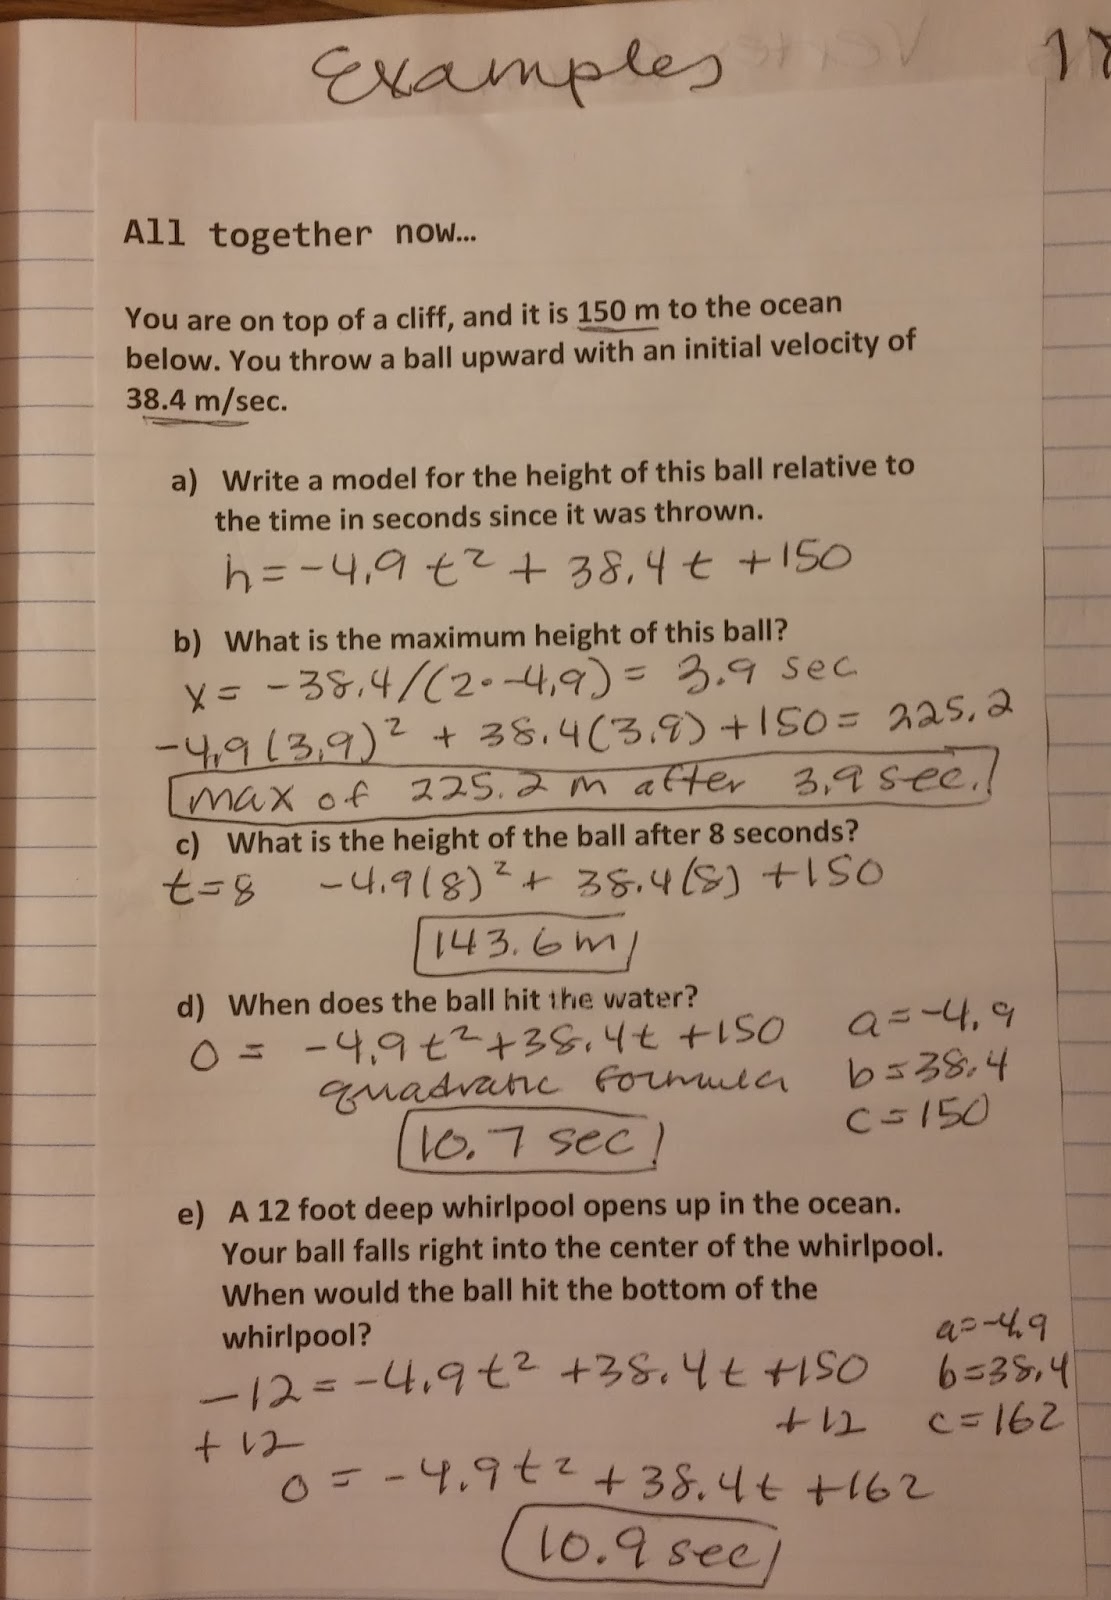 Examples
All together now...
You are on top of a cliff, and it is 150 m to the ocean
below. You throw a ball upward with an initial velocity of
38.4 m/sec.
a) Write a model for the height of this ball relative to
the time in seconds since it was thrown.
h = -4.9 t² + 38.4 t + 150
b) What is the maximum height of this ball?
x = -38.4/(2·-4.9) = 3.9 sec
-4.9(3.9)² + 38.4(3.9) + 150 = 225.2
max of 225.2 m after 3.9 sec.
c) What is the height of the ball after 8 seconds?
t=8 -4.9(8)² + 38.4(8) +150
143.6 m
d) When does the ball hit the water?
0 = -4.9t²+38.4t +150 a=-4.9
quadratic formula b=38.4
c=150
10.7 sec
e) A 12 foot deep whirlpool opens up in the ocean.
Your ball falls right into the center of the whirlpool.
When would the ball hit the bottom of the
whirlpool?
a=-4.9
-12=-4.9t² +38.4t +150 b=38.4
+12 +12 c=162
0 = -4.9t² +38.4t +162
10.9 sec